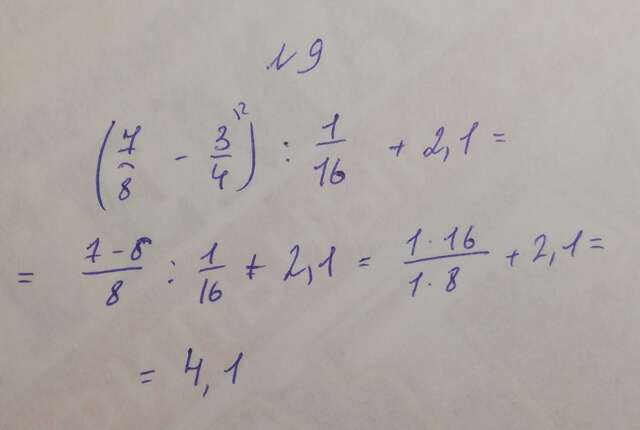 № 9
(7/8 - 3/4^{\2}) : 1/16 + 2,1 =
= (7 - 6)/8 : 1/16 + 2,1 = (1 · 16)/(1 · 8) + 2,1 =
= 4,1